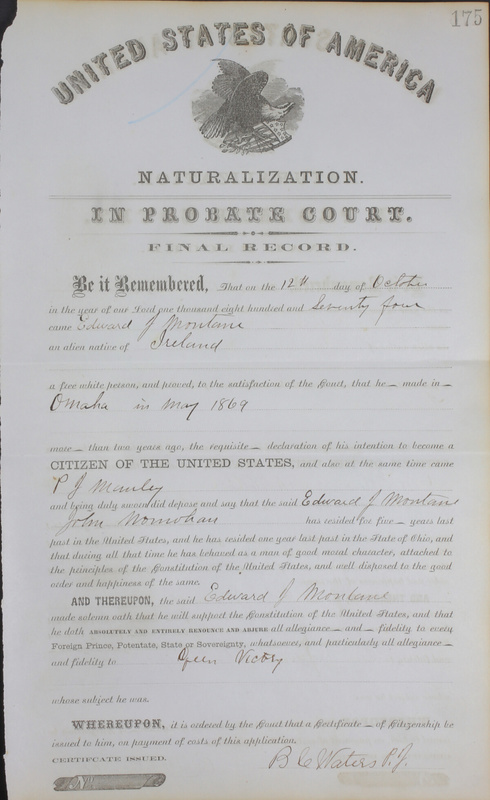 175
UNITED STATES OF AMERICA
NATURALIZATION.
IN PROBATE COURT.
FINAL RECORD.
Be it Remembered, That on the 12th day of October
in the year of our Lord one thousand eight hundred and Seventy four
came Edward J Montane
an alien native of Ireland
a free white person, and proved, to the satisfaction of the Court, that he — made in —
Omaha in May 1869
more — than two years ago, the requisite — declaration of his intention to become a
CITIZEN OF THE UNITED STATES, and also at the same time came
P J Manley
and being duly sworn did depose and say that the said Edward J Montane
John has resided for five — years last
past in the United States, and he has resided one year last past in the State of Ohio, and
that during all that time he has behaved as a man of good moral character, attached to
the principles of the Constitution of the United States, and well disposed to the good
order and happiness of the same.
AND THEREUPON, the said Edward J Montane
made solemn oath that he will support the Constitution of the United States, and that
he doth ABSOLUTELY AND ENTIRELY RENOUNCE AND ABJURE all allegiance — and — fidelity to every
Foreign Prince, Potentate, State or Sovereignty, whatsoever, and particularly all allegiance —
and fidelity to Queen Victory
whose subject he was.
WHEREUPON, it is ordered by the Court that a Certificate — of Citizenship be
issued to him, on payment of costs of this application.
CERTIFCATE ISSUED. B C Waters P.J.